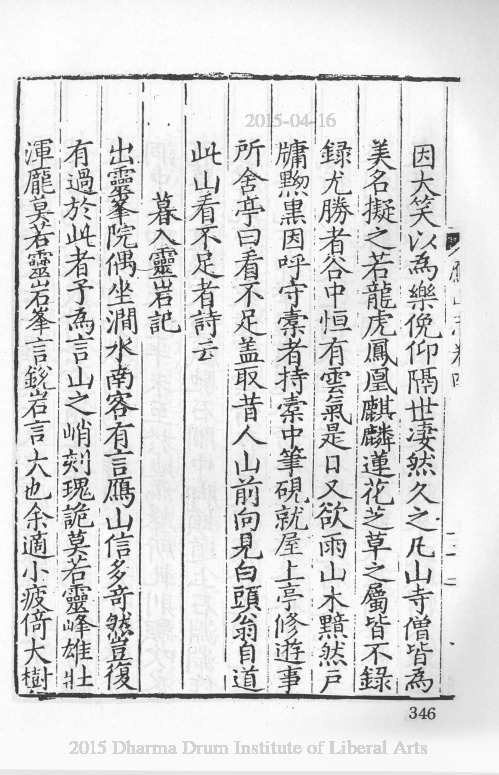 2015-04-16
因大笑以為樂俛仰隔世凄然久之凡山寺僧皆為
美名擬之若龍虎鳳凰麒麟蓮花芝草之屬皆不錄
錄尤勝者谷中恒有雲氣是日又欲雨山木黯然戶
牖黝黑因呼寺橐者持橐中筆硯就屋上亭修遊事
所舍亭曰看不足盖取昔人山前向見白頭翁自道
此山看不足者詩云
暮入靈岩記
出靈峯院偶坐澗水南客有言鴈山信多奇然豈復
有過於此者予為言山之峭刻瑰詭莫若靈峰雄壯
渾龐莫若靈岩峯言銳岩言大也余適小疲倚大樹
346
2015 Dharma Drum Institute of Liberal Arts